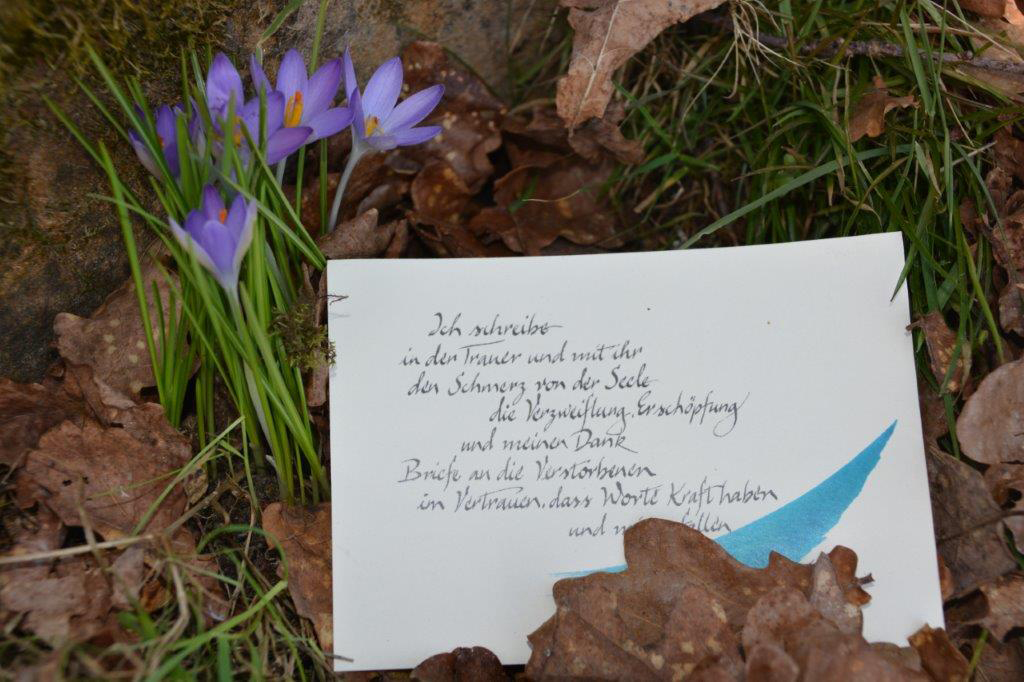 Ich schreibe
in der Trauer und mit ihr
den Schmerz von der Seele
die Verzweiflung, Erschöpfung
und meinen Dank
Briefe an die Verstorbenen
im Vertrauen, dass Worte Kraft haben
und